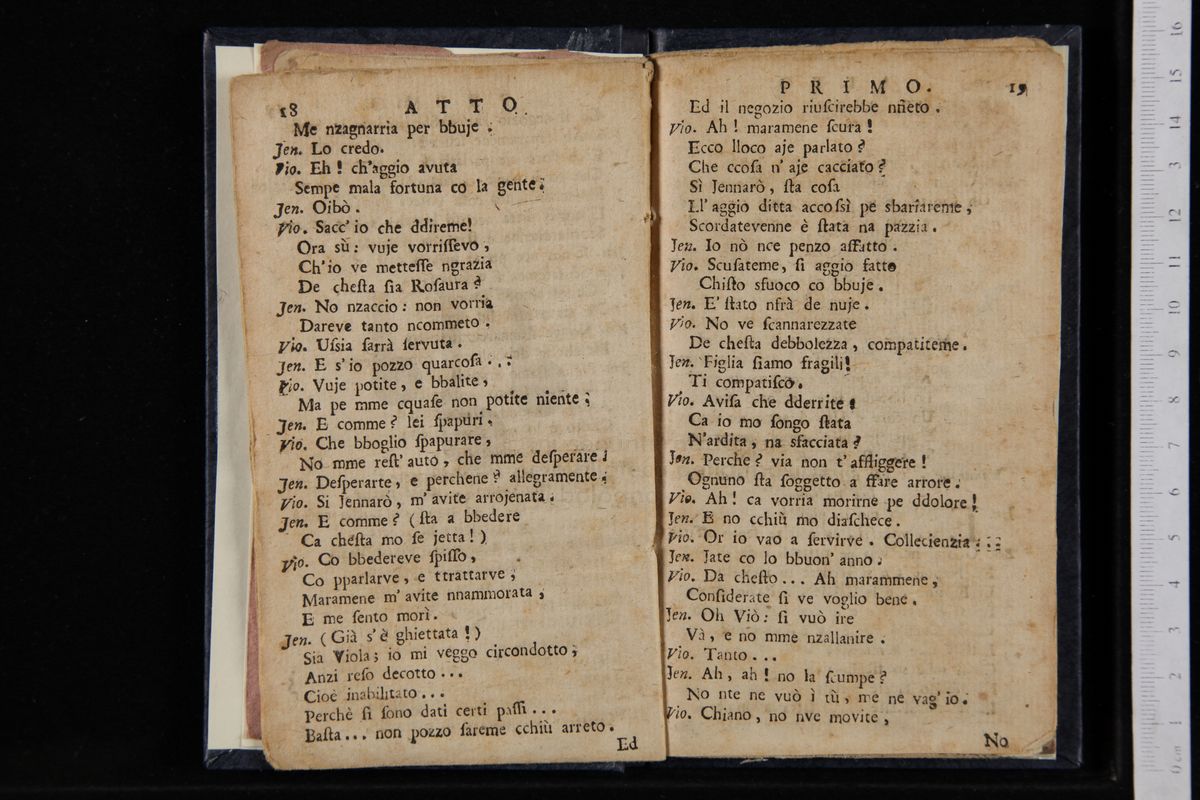 18 ATTO
Me nzagnarria per bbuje.
Jen. Lo credo.
Vio. Eh! ch'aggio avuta
Sempe mala fortuna co la gente.
Jen. Oibò.
Vio. Sacc' io che ddireme!
Ora sù: vuje vorriſſevo,
Ch'io ve metteſſe ngrazia
De cheſta ſia Roſaura?
Jen. No nzaccio: non vorria
Dareve tanto ncommeto.
Vio. Uſsia ſarrà ſervuta.
Jen. E s'io pozzo quarcoſa...
Vio. Vuje potite, e bbalite,
Ma pe mme cquaſe non potite niente;
Jen. E comme? lei ſpapuri.
Vio. Che bboglio ſpapurare,
No mme reſt' auto, che mme deſperare!
Jen. Deſperarte, e perchene? allegramente.
Vio. Si Jennarò, m'avite arrojenata.
Jen. E comme? (ſta a bbedere
Ca cheſta mo ſe jetta!)
Vio. Co bbedereve ſpiſſo,
Co pparlarve, e ttrattarve,
Maramene m'avite nnammorata,
E me ſento morì.
Jen. (Già s'è ghiettata!)
Sia Viola; io mi veggo circondotto,
Anzi reſo decotto...
Cioè inabilitato...
Perchè ſi ſono dati certi paſſi...
Baſta... non pozzo fareme cchiù arreto.
Ed
PRIMO. 19
Ed il negozio riuſcirebbe nfieto.
Vio. Ah! maramene ſcura!
Ecco lloco aje parlato?
Che ccoſa n'aje cacciato?
Sì Jennarò, ſta coſa
Ll'aggio ditta accoſsì pe sbariareme,
Scordatevenne è ſtata na pazzia.
Jen. Io nò nce penzo affatto.
Vio. Scuſateme, ſi aggio fatto
Chiſto sfuoco co bbuje.
Jen. E' ſtato nfrà de nuje.
Vio. No ve ſcannarezzate
De cheſta debbolezza, compatiteme.
Jen. Figlia ſiamo fragili!
Ti compatiſco.
Vio. Aviſa che dderrite!
Ca io mo ſongo ſtata
N'ardita, na sfacciata?
Jen. Perche? via non t'affliggere!
Ognuno ſta ſoggetto a ffare arrore.
Vio. Ah! ca vorria morirne pe ddolore!
Jen. E no cchiù mo diaſchece.
Vio. Or io vao a ſervirve. Collecienzia...
Jen. Jate co lo bbuon' anno.
Vio. Da cheſto... Ah marammene,
Conſiderate ſi ve voglio bene.
Jen. Oh Viò: ſi vuò ire
Và, e no mme nzallanire.
Vio. Tanto...
Jen. Ah, ah! no la ſcumpe?
No nte ne vuò ì tù, me ne vag' io.
Vio. Chiano, no nve movite,
No